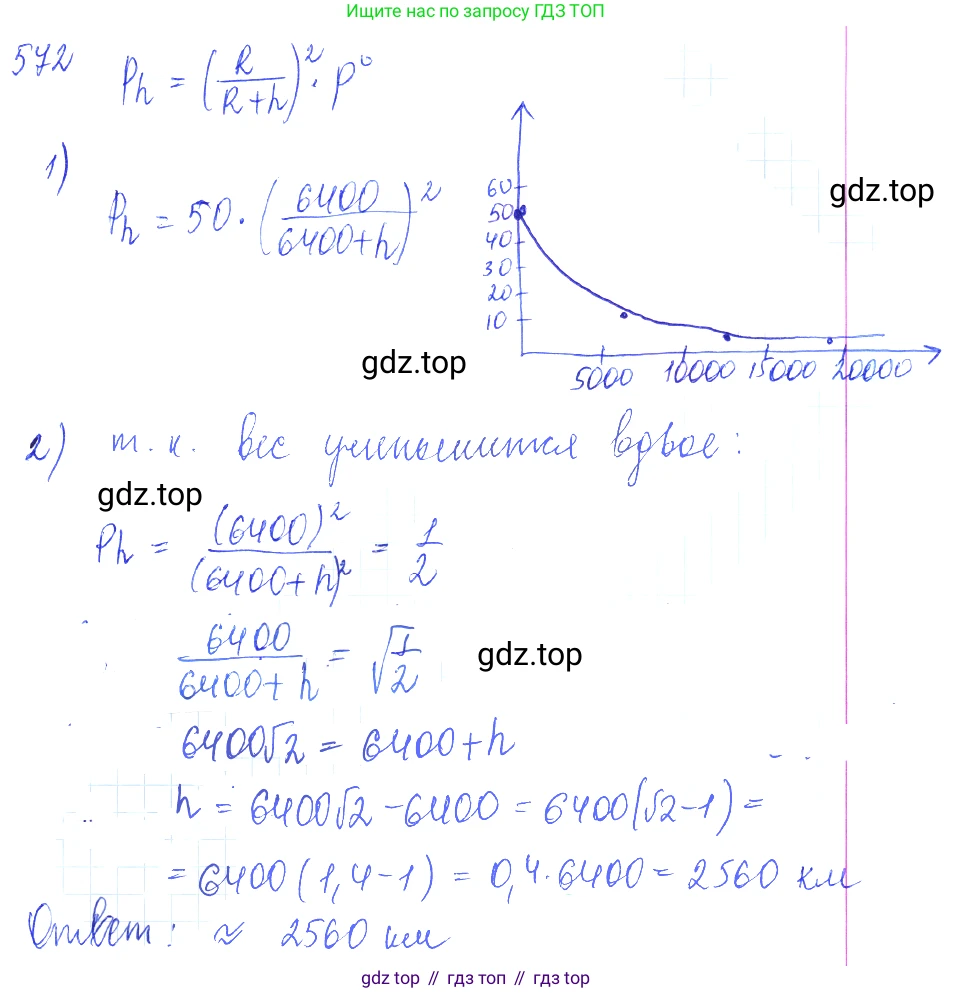 Ищите нас по запросу ГДЗ ТОП
572 Ph = (R/(R+h))²·P⁰
1)
Ph = 50·(6400/(6400+h))²
gdz.top
60
50
40
30
20
10
5000 10000 15000 20000
gdz.top
2) т.к. вес уменьшится вдвое:
gdz.top
Ph = (6400)²/(6400+h)² = 1/2
6400/(6400+h) = √1/2
gdz.top
6400√2 = 6400+h
h = 6400√2 -6400 = 6400(√2-1) =
= 6400(1,4-1) = 0,4·6400 = 2560 км
Ответ: ≈ 2560 км
gdz top // гдз топ // гдз top